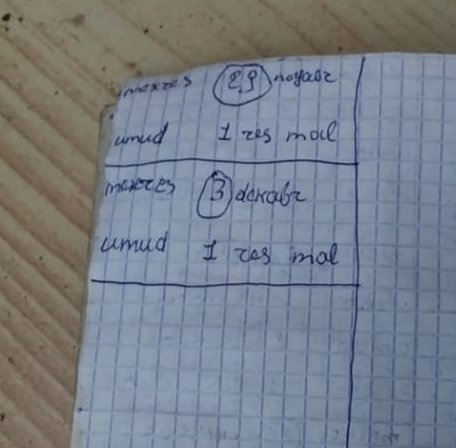 mexres 29 noyabr
umud 1 res mal
mexres 3 dekabr
umud 1 res mal